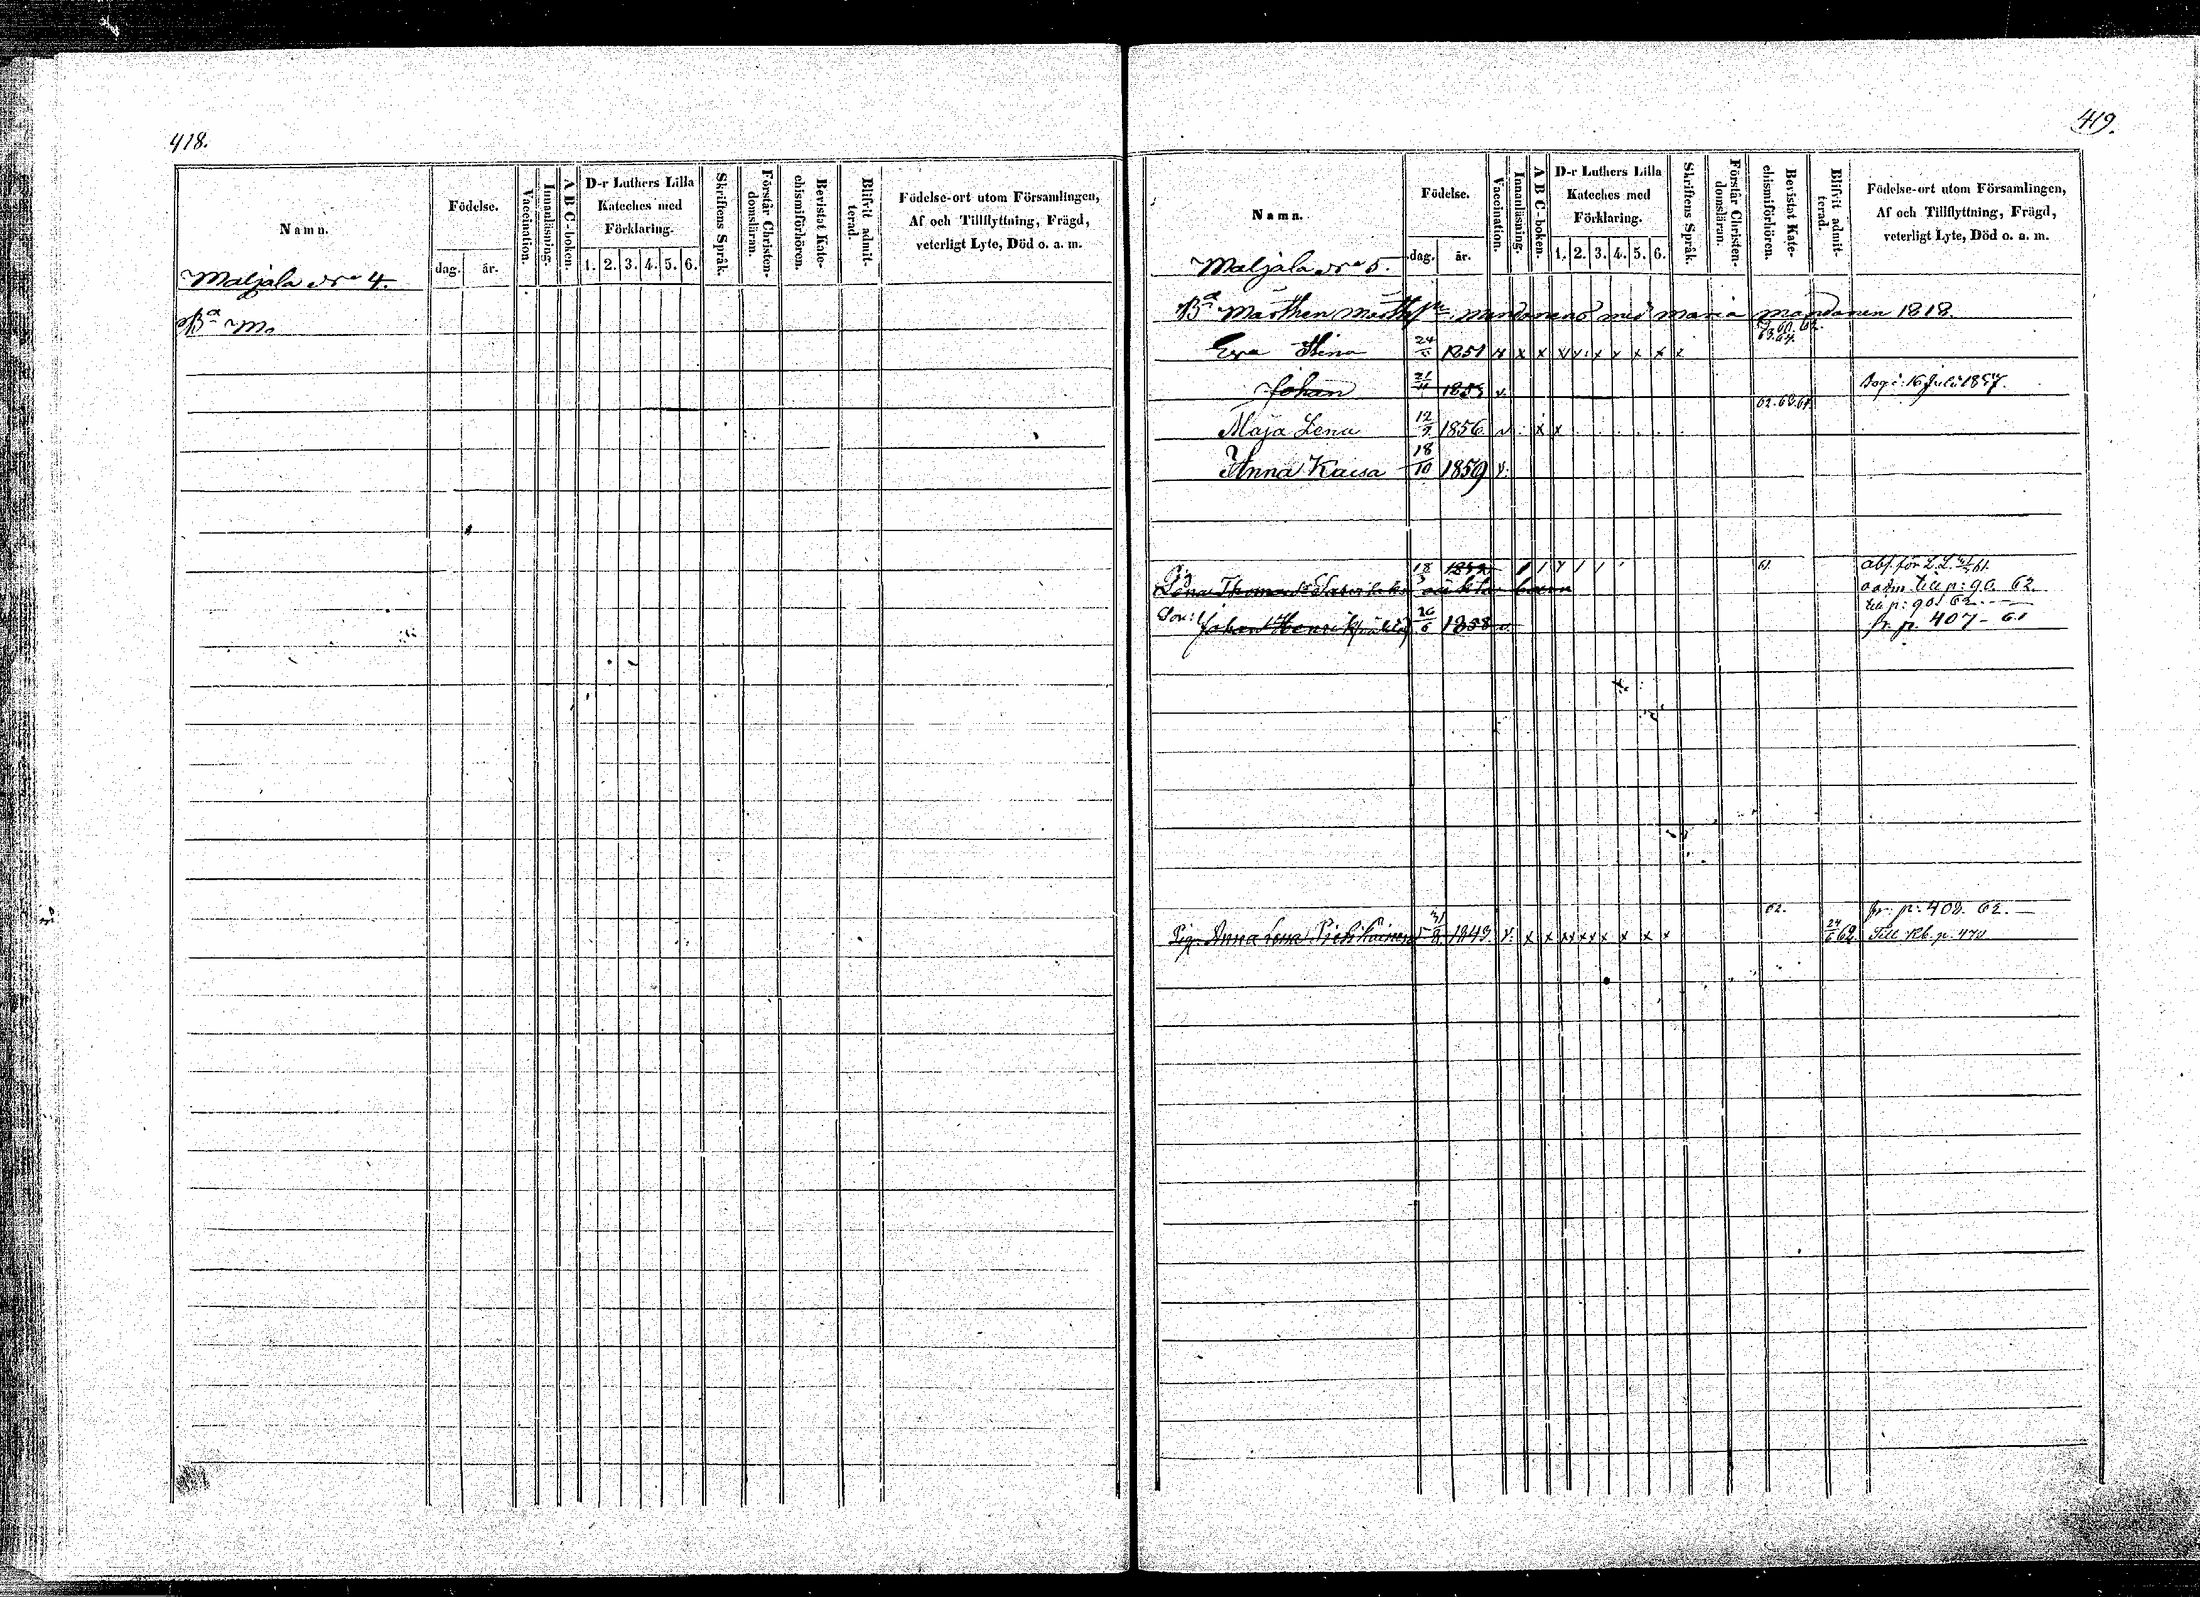 418.
Namn.
Födelse.
dag. år.
Vaccination.
Innanläsning.
A B C-boken.
D-r Luthers Lilla
Kateches med
Förklaring.
1. 2. 3. 4. 5. 6.
Skriftens Språk.
Förstår Christen-
domsläran.
Bevistat Kate-
chismiförhören.
Blifvit admit-
terad.
Födelse-ort utom Församlingen,
Af och Tillflyttning, Frägd,
veterligt Lyte, Död o. a. m.
Maljala No 4.
Ba M.
419.
Namn.
Födelse.
dag. år.
Vaccination.
Innanläsning.
A B C-boken.
D-r Luthers Lilla
Kateches med
Förklaring.
1. 2. 3. 4. 5. 6.
Skriftens Språk.
Förstår Christen-
domsläran.
Bevistat Kate-
chismiförhören.
Blifvit admit-
terad.
Födelse-ort utom Församlingen,
Af och Tillflyttning, Frägd,
veterligt Lyte, Död o. a. m.
Maljala No 5.
Ba Mårthen med Maria Mandanen 1818.
63.64.
Eva Stina 24 1851 x x x x x x x x
Johan 21/11 v. 16 Juli 1857.
62.63.64
Maja Lena 12/9 1856 v x x
Anna Kaisa 18/10 1859 v.
18 61.
Lena till p: 90. 62.
till p: 90 62.
Son: Johan Henrik 26/6 1858 v. fr. p. 407-61
62. fr. p: 408. 62.
Pig. Anna Lena 31/8 1843. v. x x x x x x x x x 24/6 62. Till Kb. p. 470